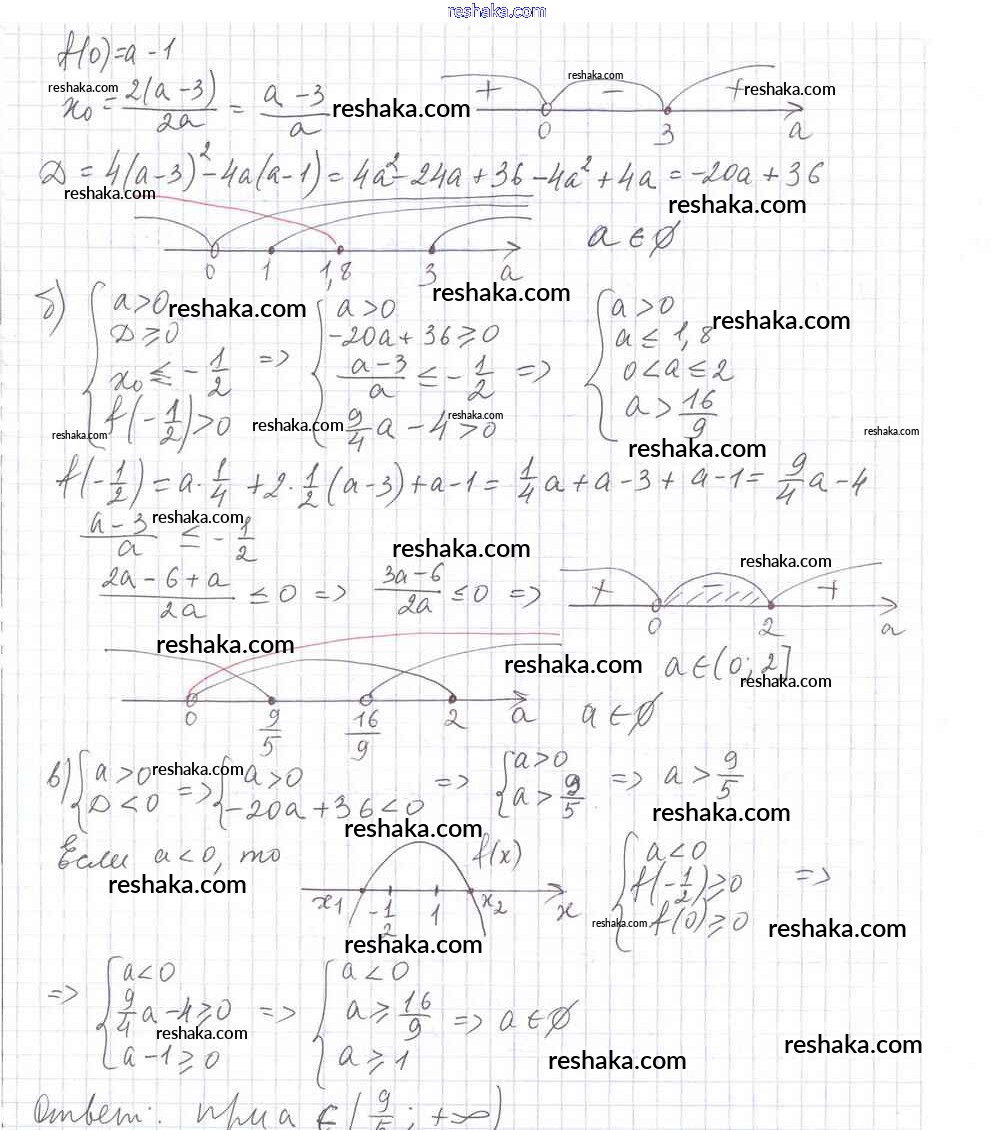 reshaka.com
f(0)=a-1
x₀ = 2(a-3)/2a = a-3/a
+ - + 0 3 a
reshaka.com reshaka.com reshaka.com reshaka.com
D = 4(a-3)² - 4a(a-1) = 4a² - 24a + 36 - 4a² + 4a = -20a + 36
reshaka.com reshaka.com
0 1 1,8 3 a a ∈ ∅
reshaka.com
б) { a>0 { a>0 { a>0
reshaka.com reshaka.com
D ≥ 0 -20a + 36 ≥ 0 a ≤ 1,8
x₀ ≤ -1/2 => a-3/a ≤ -1/2 => 0<a≤2
f(-1/2)>0 9/4 a - 4 > 0 a > 16/9
reshaka.com reshaka.com reshaka.com reshaka.com
reshaka.com
f(-1/2) = a·1/4 + 2·1/2(a-3) + a-1 = 1/4 a + a - 3 + a - 1 = 9/4 a - 4
reshaka.com
a-3/a ≤ -1/2
reshaka.com reshaka.com
2a-6+a/2a ≤ 0 => 3a-6/2a ≤ 0 =>
+ - + 0 2 a
reshaka.com reshaka.com
a ∈ (0; 2]
reshaka.com
0 9/5 16/9 2 a a ∈ ∅
в) { a>0 => { a>0 => { a>0
reshaka.com
D<0 -20a + 36 < 0 a > 9/5 => a > 9/5
reshaka.com reshaka.com
Если a<0, то
reshaka.com
f(x) x₁ -1/2 1 x₂ x
reshaka.com
{ a<0
f(-1/2) ≥ 0 =>
f(0) ≥ 0
reshaka.com reshaka.com
=> { a<0 { a<0
9/4 a - 4 ≥ 0 => a ≥ 16/9 => a ∈ ∅
a-1 ≥ 0 a ≥ 1
reshaka.com reshaka.com reshaka.com
Ответ: при a ∈ (9/5; +∞)